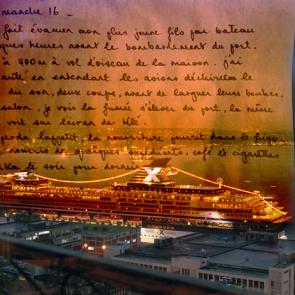 manche 16 -
fait évacuer mon plus jeune fils par bateau
ques heures avant le bombardement du port.
à 400 m à vol d'oiseau de la maison. J'ai
en entendant les avions déchirer le
du son, deux coups, avant de larguer leurs bombes.
salon, je vois la fumée s'élever du port, la même
sur
perdu l'appétit, la nourriture pourrit dans le frigo.
nourris de quelques , café et cigarettes
le soir pour dormir